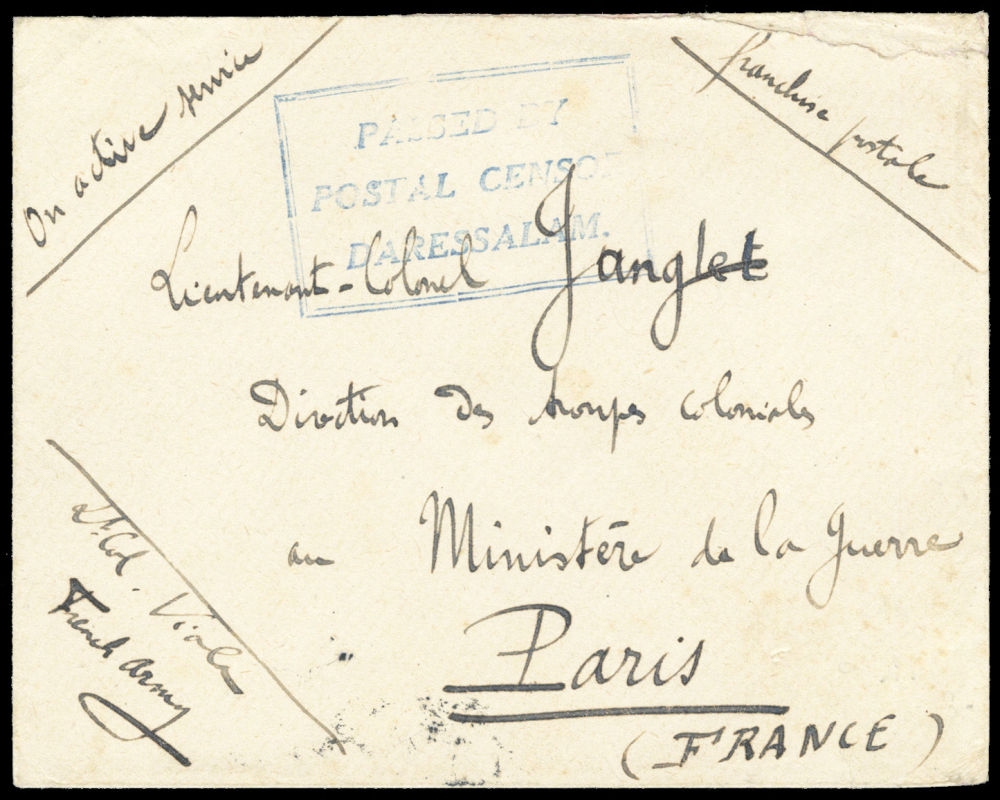 On active service
franchise postale
PASSED BY
POSTAL CENSOR
DARESSALAM.
Lieutenant-Colonel Janglet
Direction des troupes coloniales
au Ministère de la Guerre
Paris
(FRANCE)
Lt Col. Viala
French army